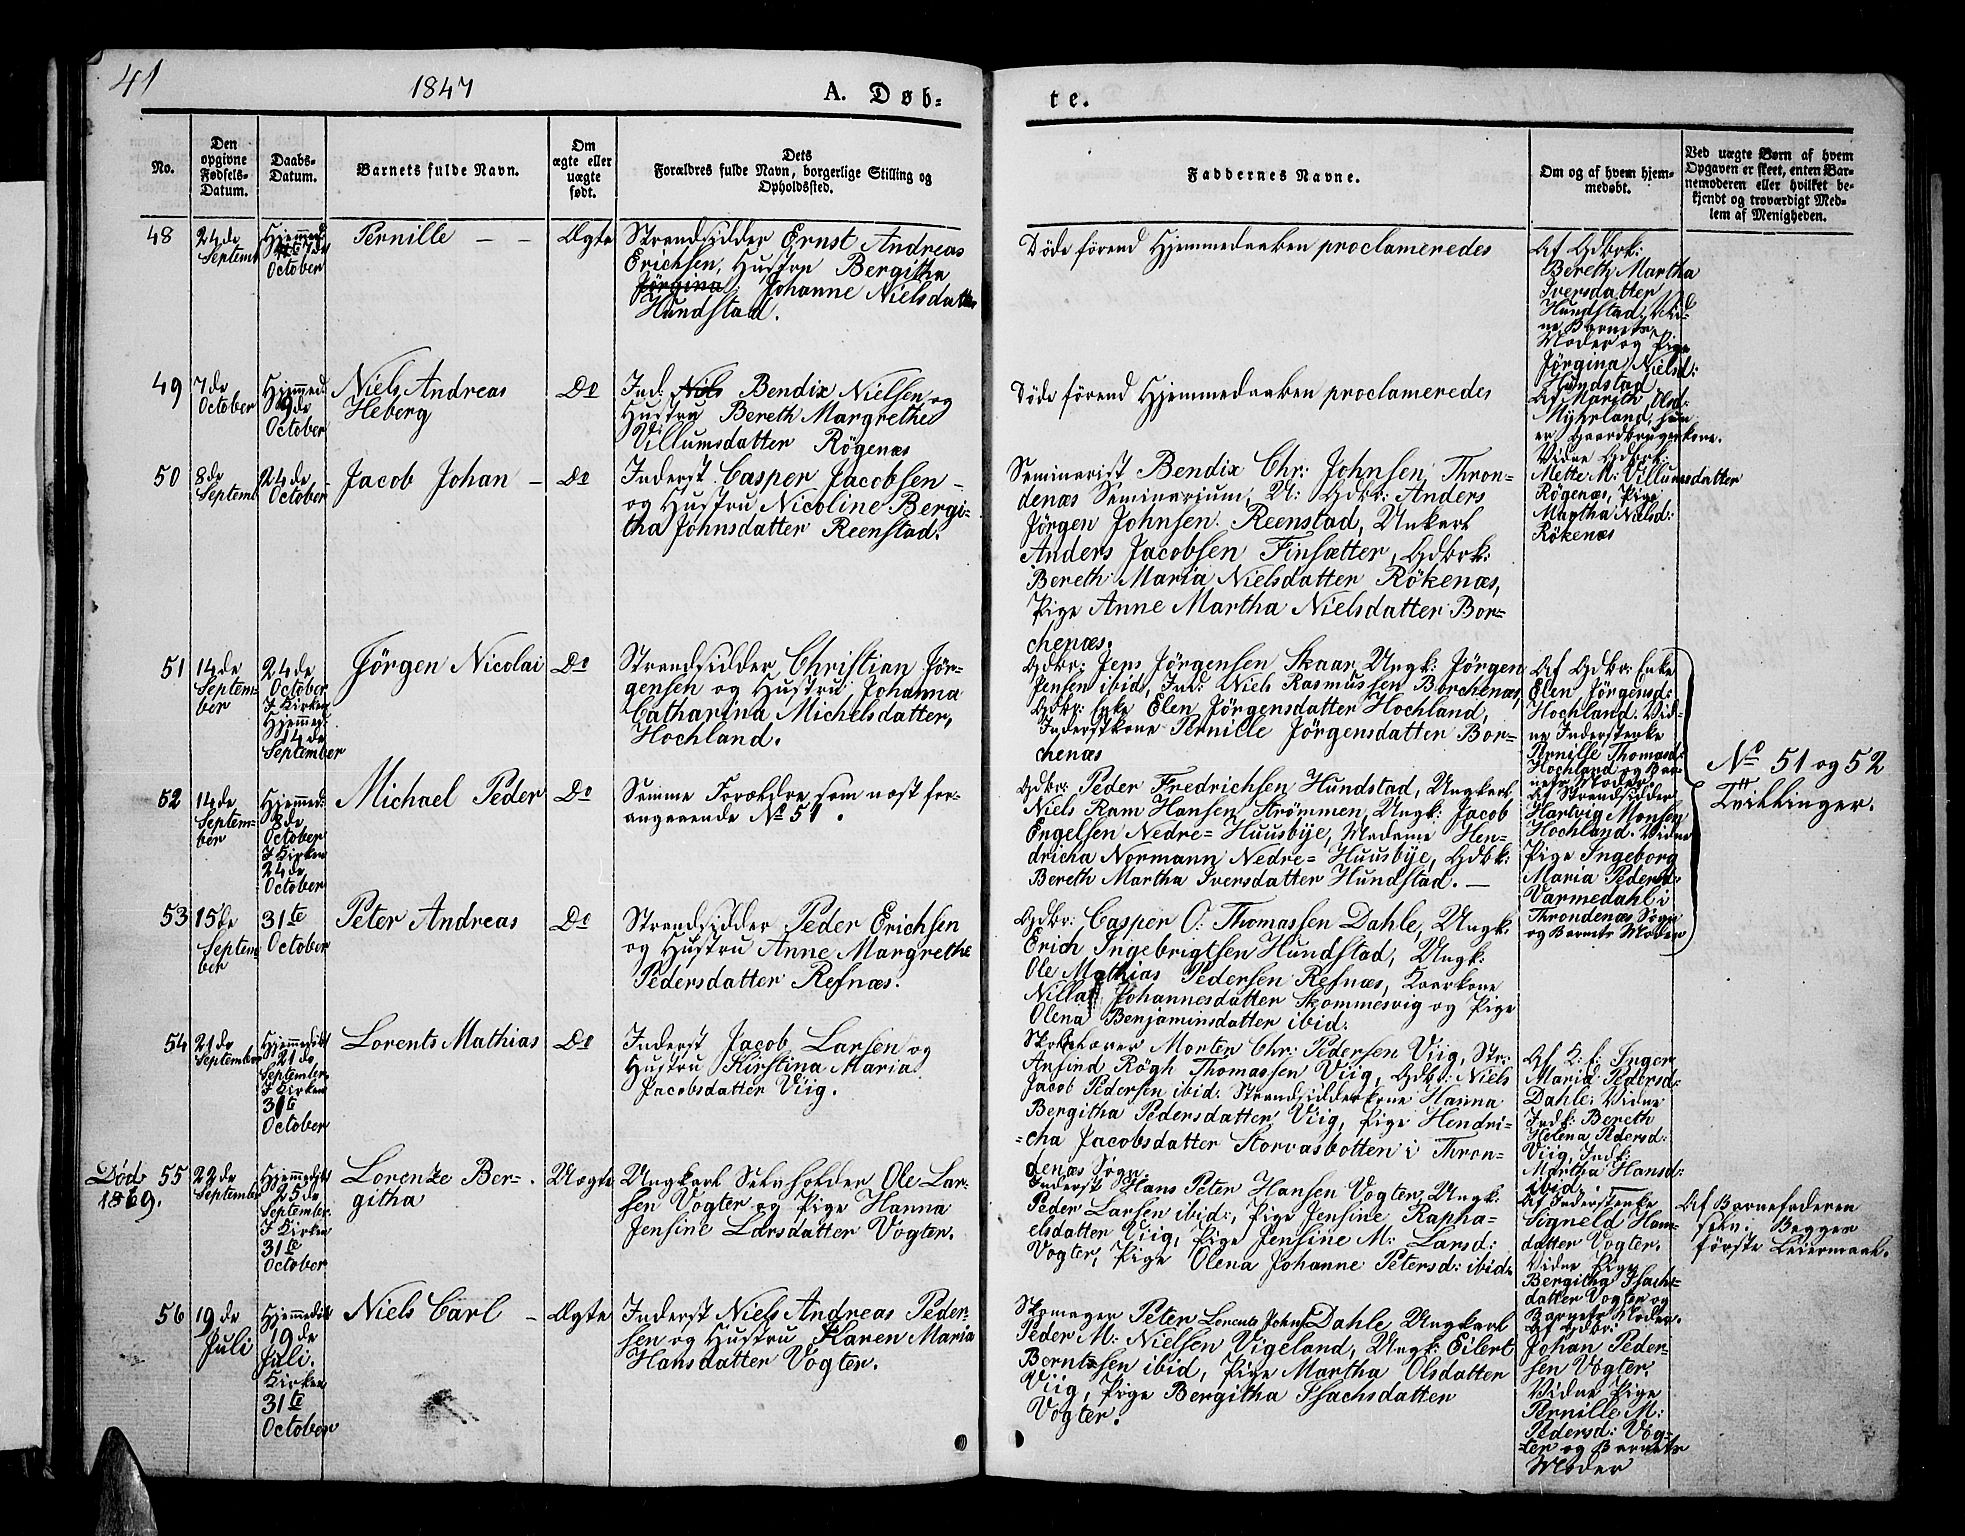 41
1847
A. Døb-
te.
No.
Den
opgivne
Fødsels-
Datum.
Daabs-
Datum.
Barnets fulde Navn.
Om
ægte eller
uægte
født.
Dets
Forældres fulde Navn, borgerlige Stilling og
Opholdssted.
Faddernes Navne.
Om og af hvem hjem-
medøbt.
Ved uægte Børn af hvem
Opgaven er skeet, enten Bar-
nemoderen eller hvilket be-
kjendt og troværdigt Med-
lem af Menigheden.
48
24de
Septemb
Hjemmed
7de
October
Pernille - -
Ægte
Strandsidder Ernst Andreas
Erichsen, Hustru Bergitha
Jørgina Johanne Nielsdatter
Hundstad.
Døde förend Hjemmedaaben proclameredes
Af Gdbrk:
Bereth Martha
Iversdatter
Hundstad, Vid-
ne Barnets
Moder og Pige
Jørgina Nielsd:
Hundstad
49
7de
October
Hjemmed
9de
October
Niels Andreas
Heberg
Do
Ind: Niels Bendix Nielsen og
Hustru Bereth Margrethe
Villumsdatter Rögenæs
Døde förend Hjemmedaaben proclameredes
Af Marith Olsd:
Myhrland, hun
er Gaardbrugerkone.
Vidne Gdbrk:
Mette M: Villumsdatter
Rögenæs, Pige
Martha Nielsd:
Rökenæs
50
8de
Septemb
24de
October
Jacob Johan -
Do
Inderst Casper Jacobsen -
og Hustru Nicoline Bergi-
tha Johnsdatter Reenstad.
Seminarist Bendix Chr: Johnsen, Thron-
denæs Seminarium, U: Gdbr: Anders
Jörgen Johnsen Reenstad, Unkarl
Anders Jacobsen Finsætter, Gdbrk:
Bereth Maria Nielsdatter Rökenæs,
Pige Anne Martha Nielsdatter Bor-
chenæs.
51
14de
Septem-
ber
24de
October
I Kirken
Hjemmed
14de
September
Jörgen Nicolai
Do
Strandsidder Christian Jör-
gensen og Hustru Johanna
Catharina Michelsdatter,
Hochland.
Gdbr: Jens Jörgensen Skaar, Ungk: Jörgen
Jensen ibid, Ind: Niels Rasmussen Borchenæs,
Gdbr: Enke Elen Jörgensdatter Hochland,
Inderstkone Pernille Jörgensdatter Bor-
chenæs
Af Gdbr: Enke
Elen Jörgensd:
Hochland. Vid-
ne Inderstenke
Pernille Thomasd:
Hochland og Bar-
nets Moder
No 51 og 52
Tvillinger.
52
14de
Septem-
ber
Hjemmed:
8de
October
I Kirken
24de
October
Michael Peder
Do
Samme Forældre som næst for-
angaaende No 51.
Gdbr: Peder Fredrichsen Hundstad, Ungkarl
Niels Ram Hansen Strömmen, Ungk: Jacob
Engelsen Nedre-Huusbye, Madame Hen-
dricha Normann Nedre-Huusbye, Gdbk:
Bereth Martha Iversdatter Hundstad. -
Af Strandsidder
Hartvig Monsen
Hochland. Vidne
Pige Ingeborg
Maria Pedersd:
Varmedahl i
Throndenæs Sogn
og Barnets Moder
53
15de
Septem-
ber
31te
October
Peter Andreas
Do
Strandsidder Peder Erichsen
og Hustru Anne Margrethe
Pedersdatter Refnæs.
Gdbr: Casper O: Thomassen Dahle, Ungk:
Erich Ingebrigtsen Hundstad, Ungk:
Ole Mathias Pedersen Refnæs, Kaarkone
Johannesdatter Skommesvig og Pige
Olena Benjaminsdatter ibid.
54
21de
September
Hjemmedöbt
21de
September
I Kirken
31te
October
Lorents Mathias
Do
Inderst Jacob Larsen og
Hustru Kirstina Maria
Jacobsdatter Viig.
Skolelærer Morten Chr: Pedersen Viig, Str:
Arnfind Rögh Thomassen Viig, Gdbr: Niels
Jacob Pedersen ibid: Strandsidderkone Hanna
Bergitha Pedersdatter Viig, Pige Hendri-
cha Jacobsdatter Storvasbotten i Thron-
denæs Sogn.
Af K: f: Inger
Maria Pedersd:
Dahle: Vidne
Indk: Bereth
Helena Pedersd:
Viig, Indk:
Martha Hansd:
ibid. -
Död
1869.
55
22de
September
Hjemmedöbt
25de
September
I Kirken
31te
October
Lorenze Ber-
githa
Uægte
Ungkarl Selvholder Ole Lar-
sen Vogter og Pige Hanna
Jensine Larsdatter Vogter.
Inderst Hans Peter Hansen Vogter, Ungk:
Peder Larsen ibid:, Pige Jensine Rapha-
elsdatter Viig, Pige Jensine M: Larsd:
Vogter, Pige Olena Johanne Petersd: ibid:
Af Inderstenke
Signeld Hans-
datter Vogter.
Vidne Pige
Bergitha Isachs-
datter Vogter og
Barnets Moder.
Af Barnefaderen
selv. Begges
förste Leiermaal.
56
19de
Juli
Hjemmedöbt
19de
Juli.
Kirken
31te
October
Niels Carl -
Ægte
Inderst Niels Andreas Peder-
sen og Hustru Karen Maria
Hansdatter Vogter.
Skomager Peter Lorents Johns Dahle, Ungkarl
Peder M: Nielsen Vigeland, Ungk: Eilert
Berntsen ibid, Pige Martha Olsdatter
Viig, Pige Bergitha Isachsdatter
Vogter.
Af Gdbr:
Johan Peder-
sen Vogter.
Vidne Pige
Pernille M:
Pedersd: Vog-
ter og Barnets
Moder